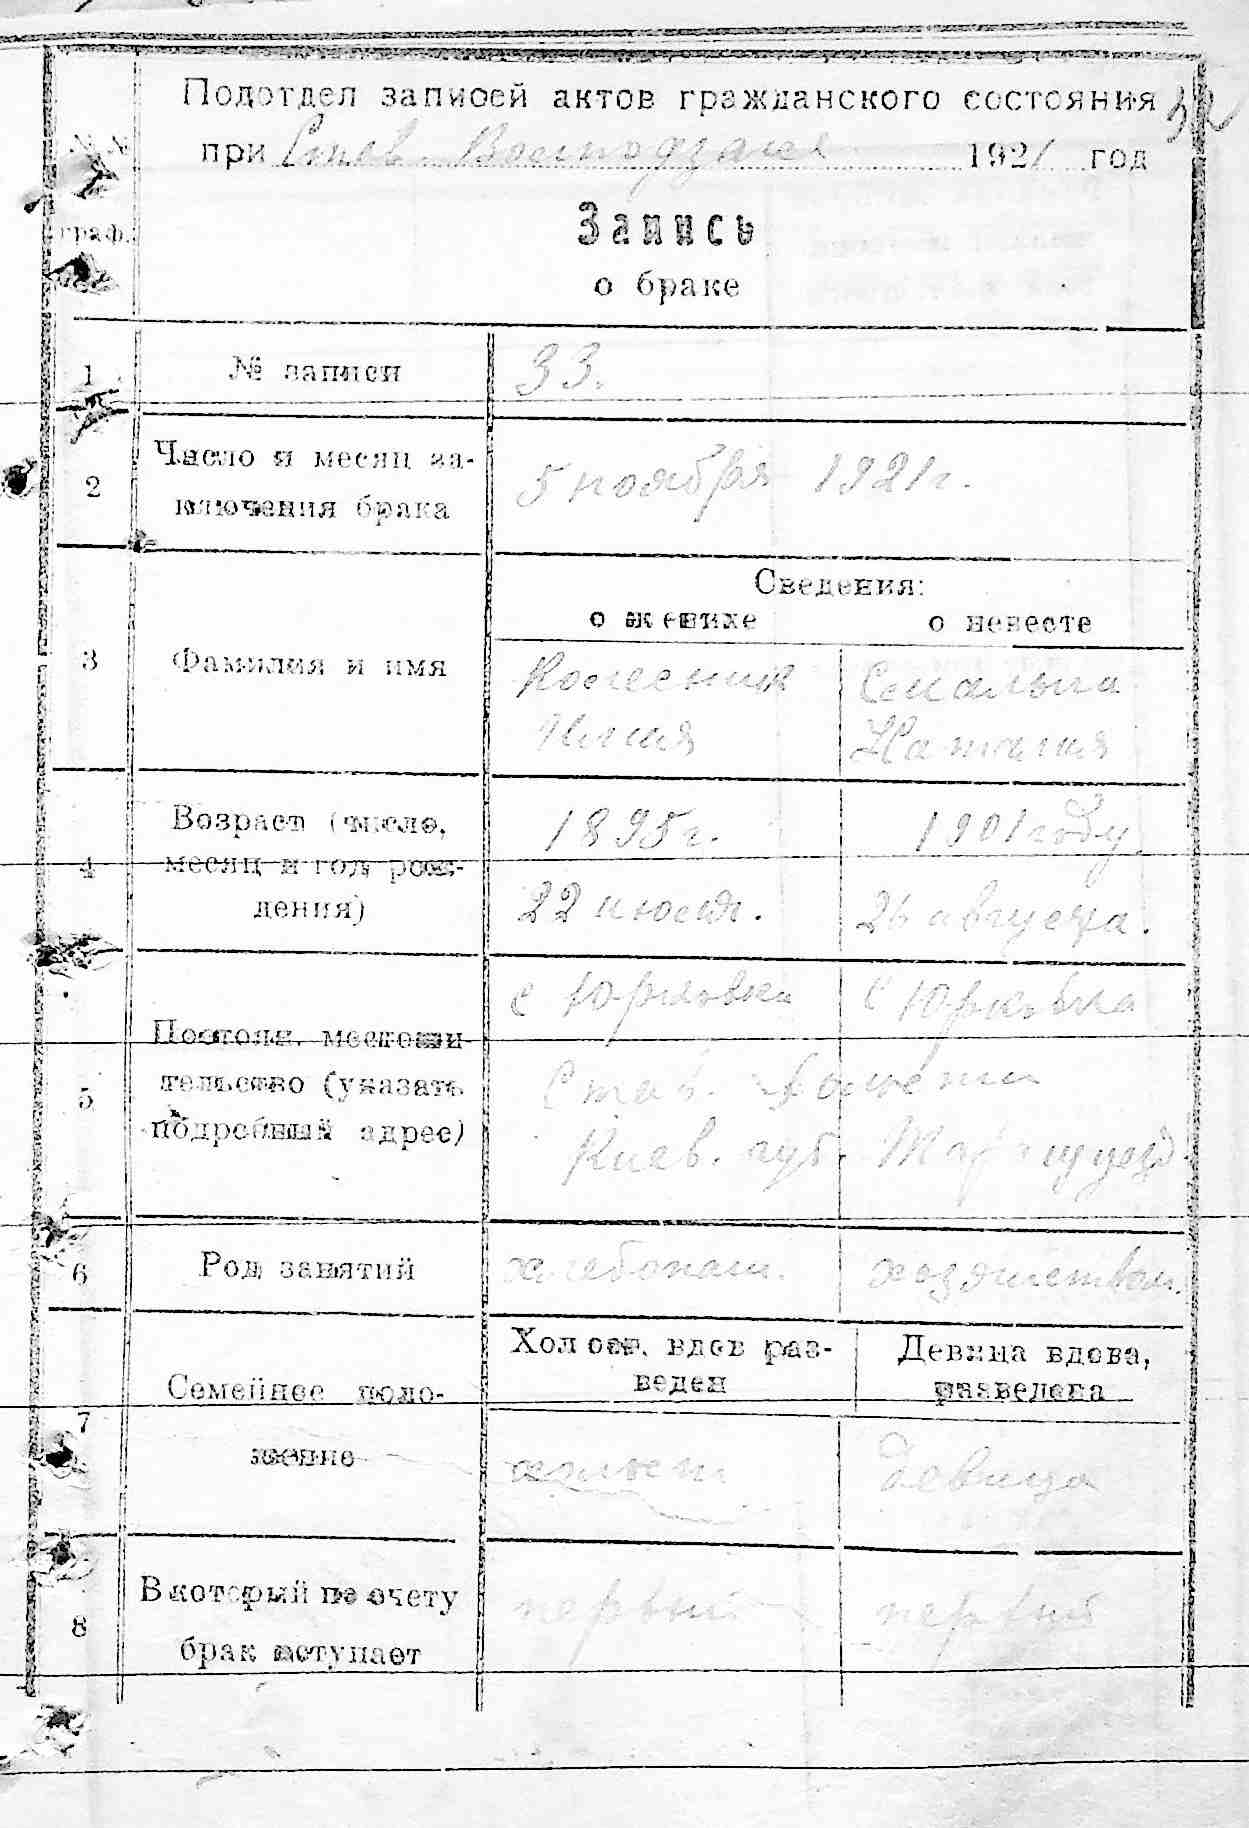 32
Подотдел записей актов гражданского состояния
при Став. 1921 год
граф.
Запись
о браке
1 № записи 33.
2 Число и месяц за-
ключения брака 5 ноября 1921 г.
Сведения:
о женихе о невесте
3 Фамилия и имя Колесник
Илия Наталия
4 Возраст (число,
месяц и год рож-
дения)
1895 г. 1901 году
22 июля. 26 августа.
5 Постоян. местожи-
тельство (указать
подробный адрес)
с Юрковка с Юрковка
Став. волости
Киев. губ. уезд
6 Род занятий хлебопаш. хозяйством.
Холост, вдов раз-
веден
Девица вдова,
разведена
7 Семейное поло-
жение
холост девица
8 В который по счету
брак вступает
первый первый